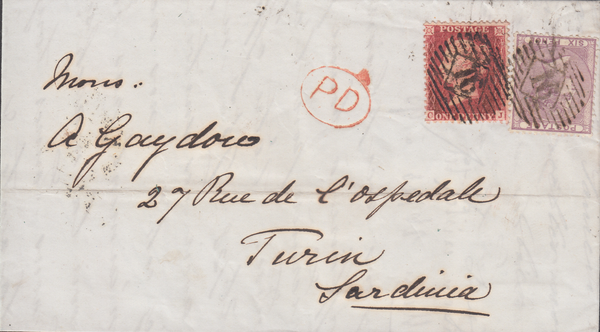 POSTAGE
ONE PENNY
C J
SIX PENCE
POSTAGE
PD
Mons:
A Gaydou
27 Rue de l'Ospedale
Turin
Sardinia